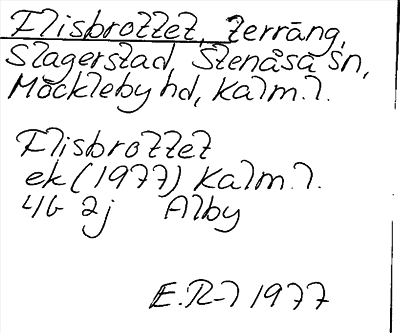 Flisbrottet, terräng,
Slagerstad, Stenåsa sn,
Möckleby hd, Kalm. l.
Flisbrottet
ek (1977) Kalm. l.
4G 2j Alby
E. R-l 1977